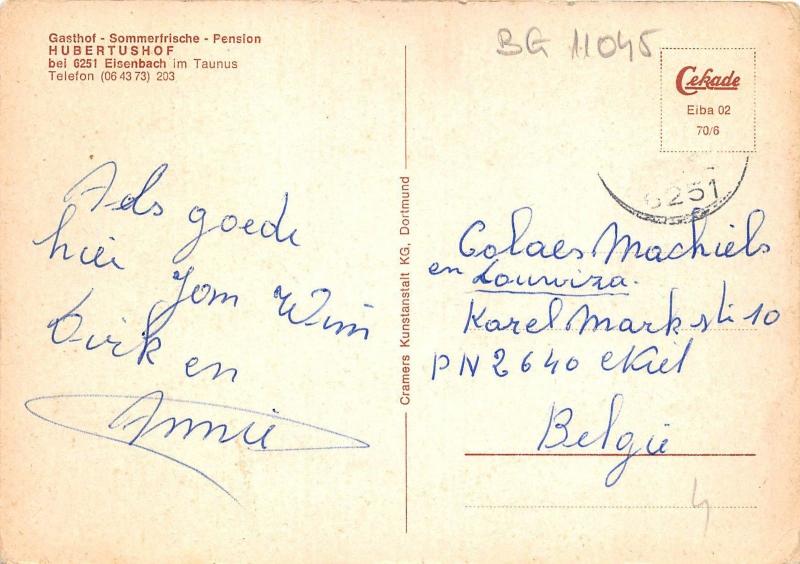 Gasthof - Sommerfrische - Pension
HUBERTUSHOF
bei 6251 Eisenbach im Taunus
Telefon (06 43 73) 203
BG 11045
Cekade
Eiba 02
70/6
6251
Cramers Kunstanstalt KG, Dortmund
Als goede
hier Jom Wim
Dirk en
Annie
Colaes Machiels
en Louwiza.
Karel Mark str 10
PN 2640 Ekiel
België